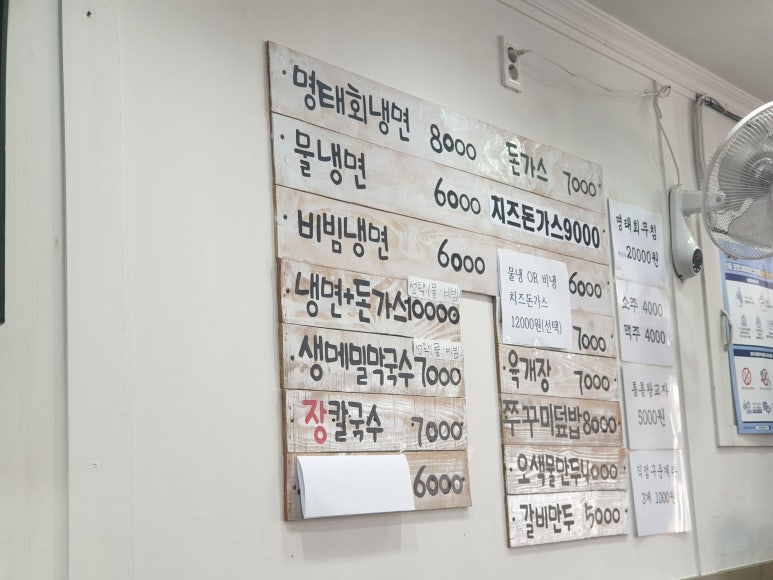 · 명태회냉면 8000
· 물냉면 6000
· 비빔냉면 6000
· 냉면+돈가스 10000
선택(물·비빔)
· 생메밀막국수 7000
선택(물·비빔)
· 장칼국수 7000
6000
돈가스 7000
치즈돈가스 9000
6000
물냉 OR 비냉
치즈돈가스
12000원(선택)
7000
· 육개장 7000
쭈꾸미덮밥 8000
· 오색물만두 4000
· 갈비만두 5000
명태회무침
20000원
소주 4000
맥주 4000
통통왕교자
5000원
직접구운계란
3개 1000원